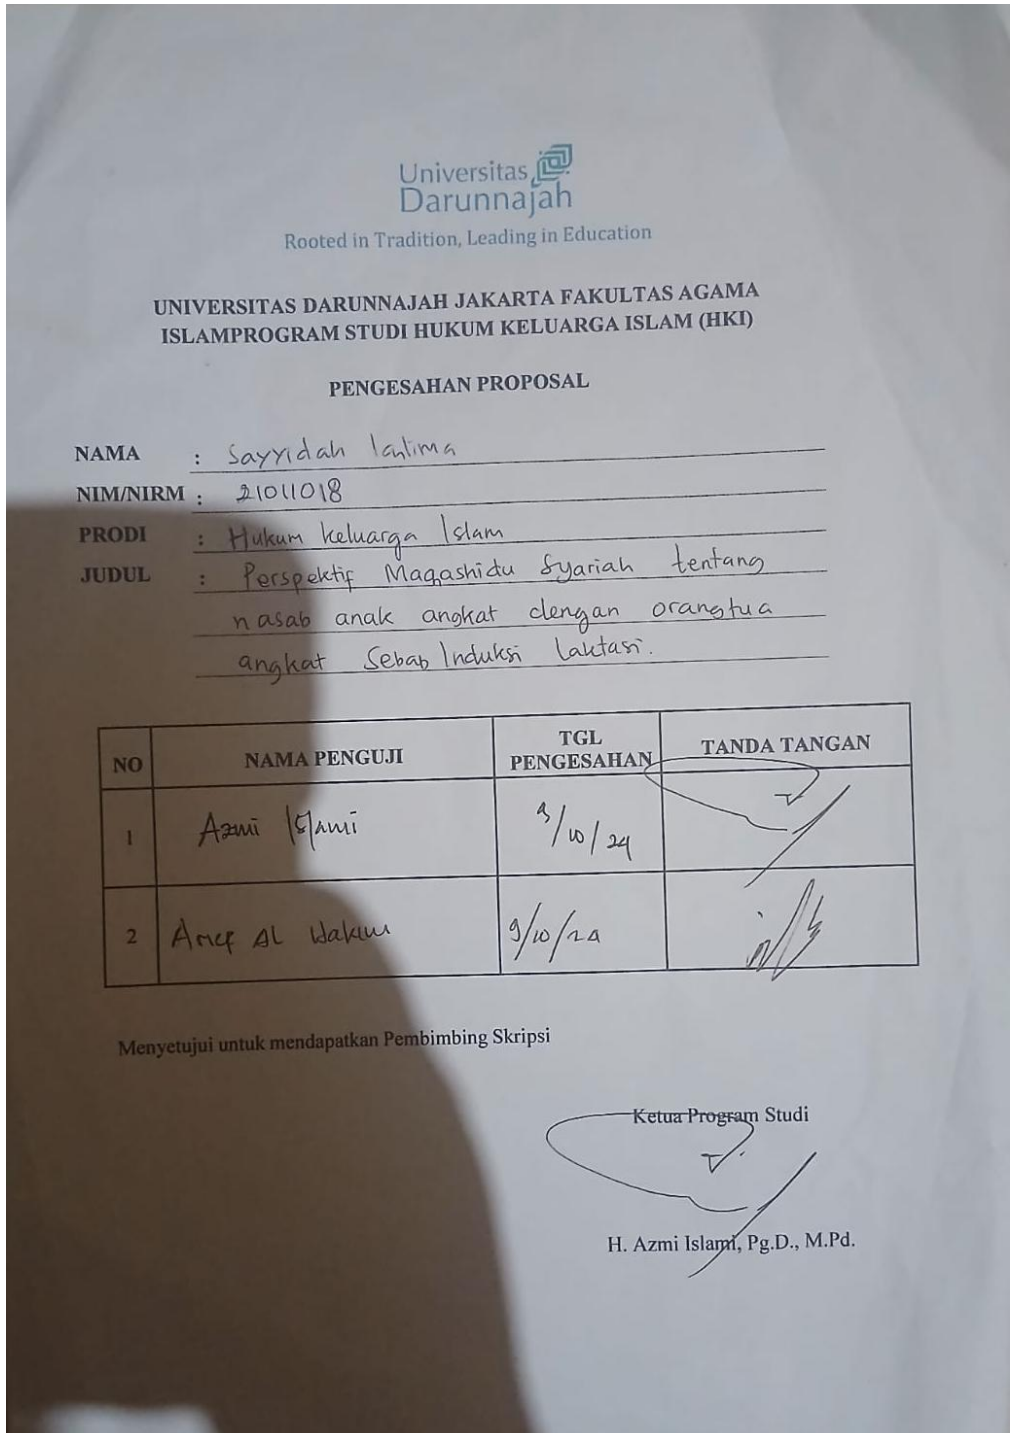 Universitas
Darunnajah
Rooted in Tradition, Leading in Education
UNIVERSITAS DARUNNAJAH JAKARTA FAKULTAS AGAMA
ISLAMPROGRAM STUDI HUKUM KELUARGA ISLAM (HKI)
PENGESAHAN PROPOSAL
NAMA : Sayyidah
NIM/NIRM : 21011018
PRODI : Hukum keluarga Islam
JUDUL : Perspektif Maqashidu Syariah tentang
nasab anak angkat dengan orangtua
angkat Sebab Induksi laktasi.
NO NAMA PENGUJI TGL PENGESAHAN TANDA TANGAN
1 Azmi Islami 9/10/24
2 Al Hakim 9/10/24
Menyetujui untuk mendapatkan Pembimbing Skripsi
Ketua Program Studi
H. Azmi Islami, Pg.D., M.Pd.